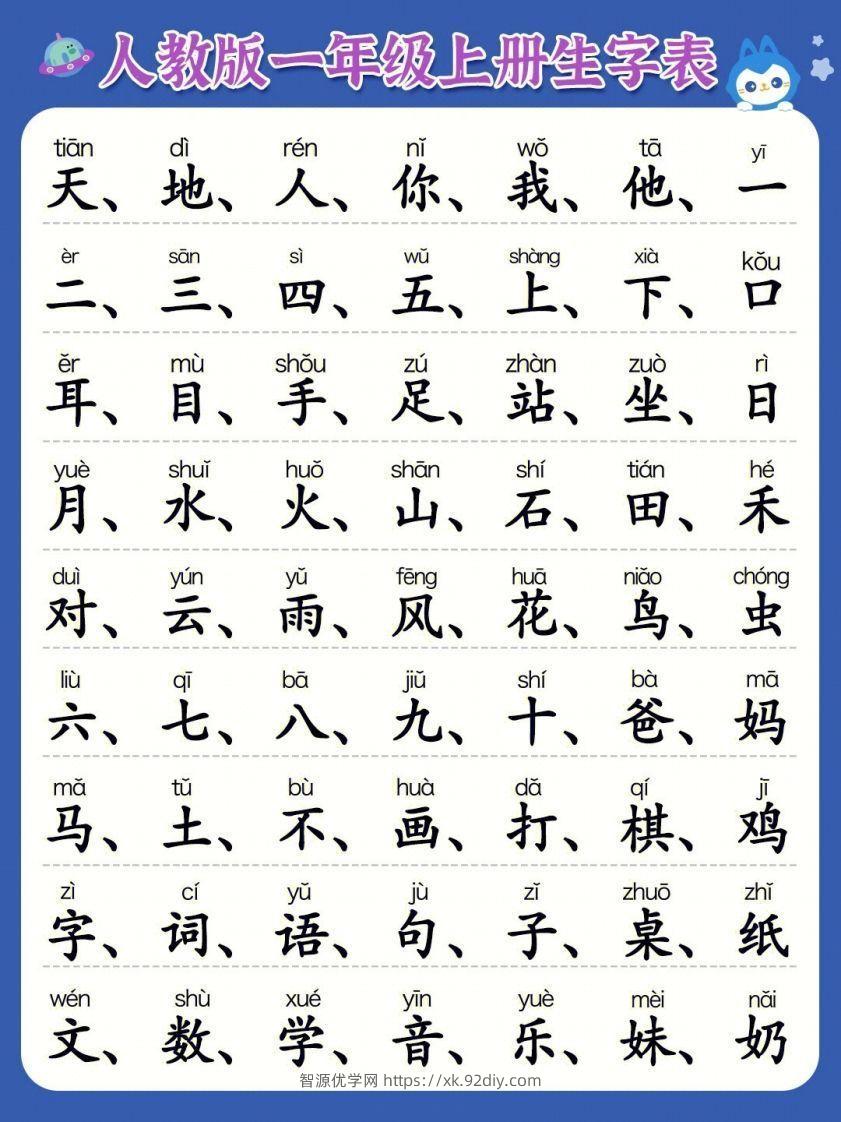 人教版一年级上册生字表
tiān dì rén nǐ wǒ tā yī
天、地、人、你、我、他、一
èr sān sì wǔ shàng xià kǒu
二、三、四、五、上、下、口
ěr mù shǒu zú zhàn zuò rì
耳、目、手、足、站、坐、日
yuè shuǐ huǒ shān shí tián hé
月、水、火、山、石、田、禾
duì yún yǔ fēng huā niǎo chóng
对、云、雨、风、花、鸟、虫
liù qī bā jiǔ shí bà mā
六、七、八、九、十、爸、妈
mǎ tǔ bù huà dǎ qí jī
马、土、不、画、打、棋、鸡
zì cí yǔ jù zǐ zhuō zhǐ
字、词、语、句、子、桌、纸
wén shù xué yīn yuè mèi nǎi
文、数、学、音、乐、妹、奶
智源优学网 https://xk.92diy.com